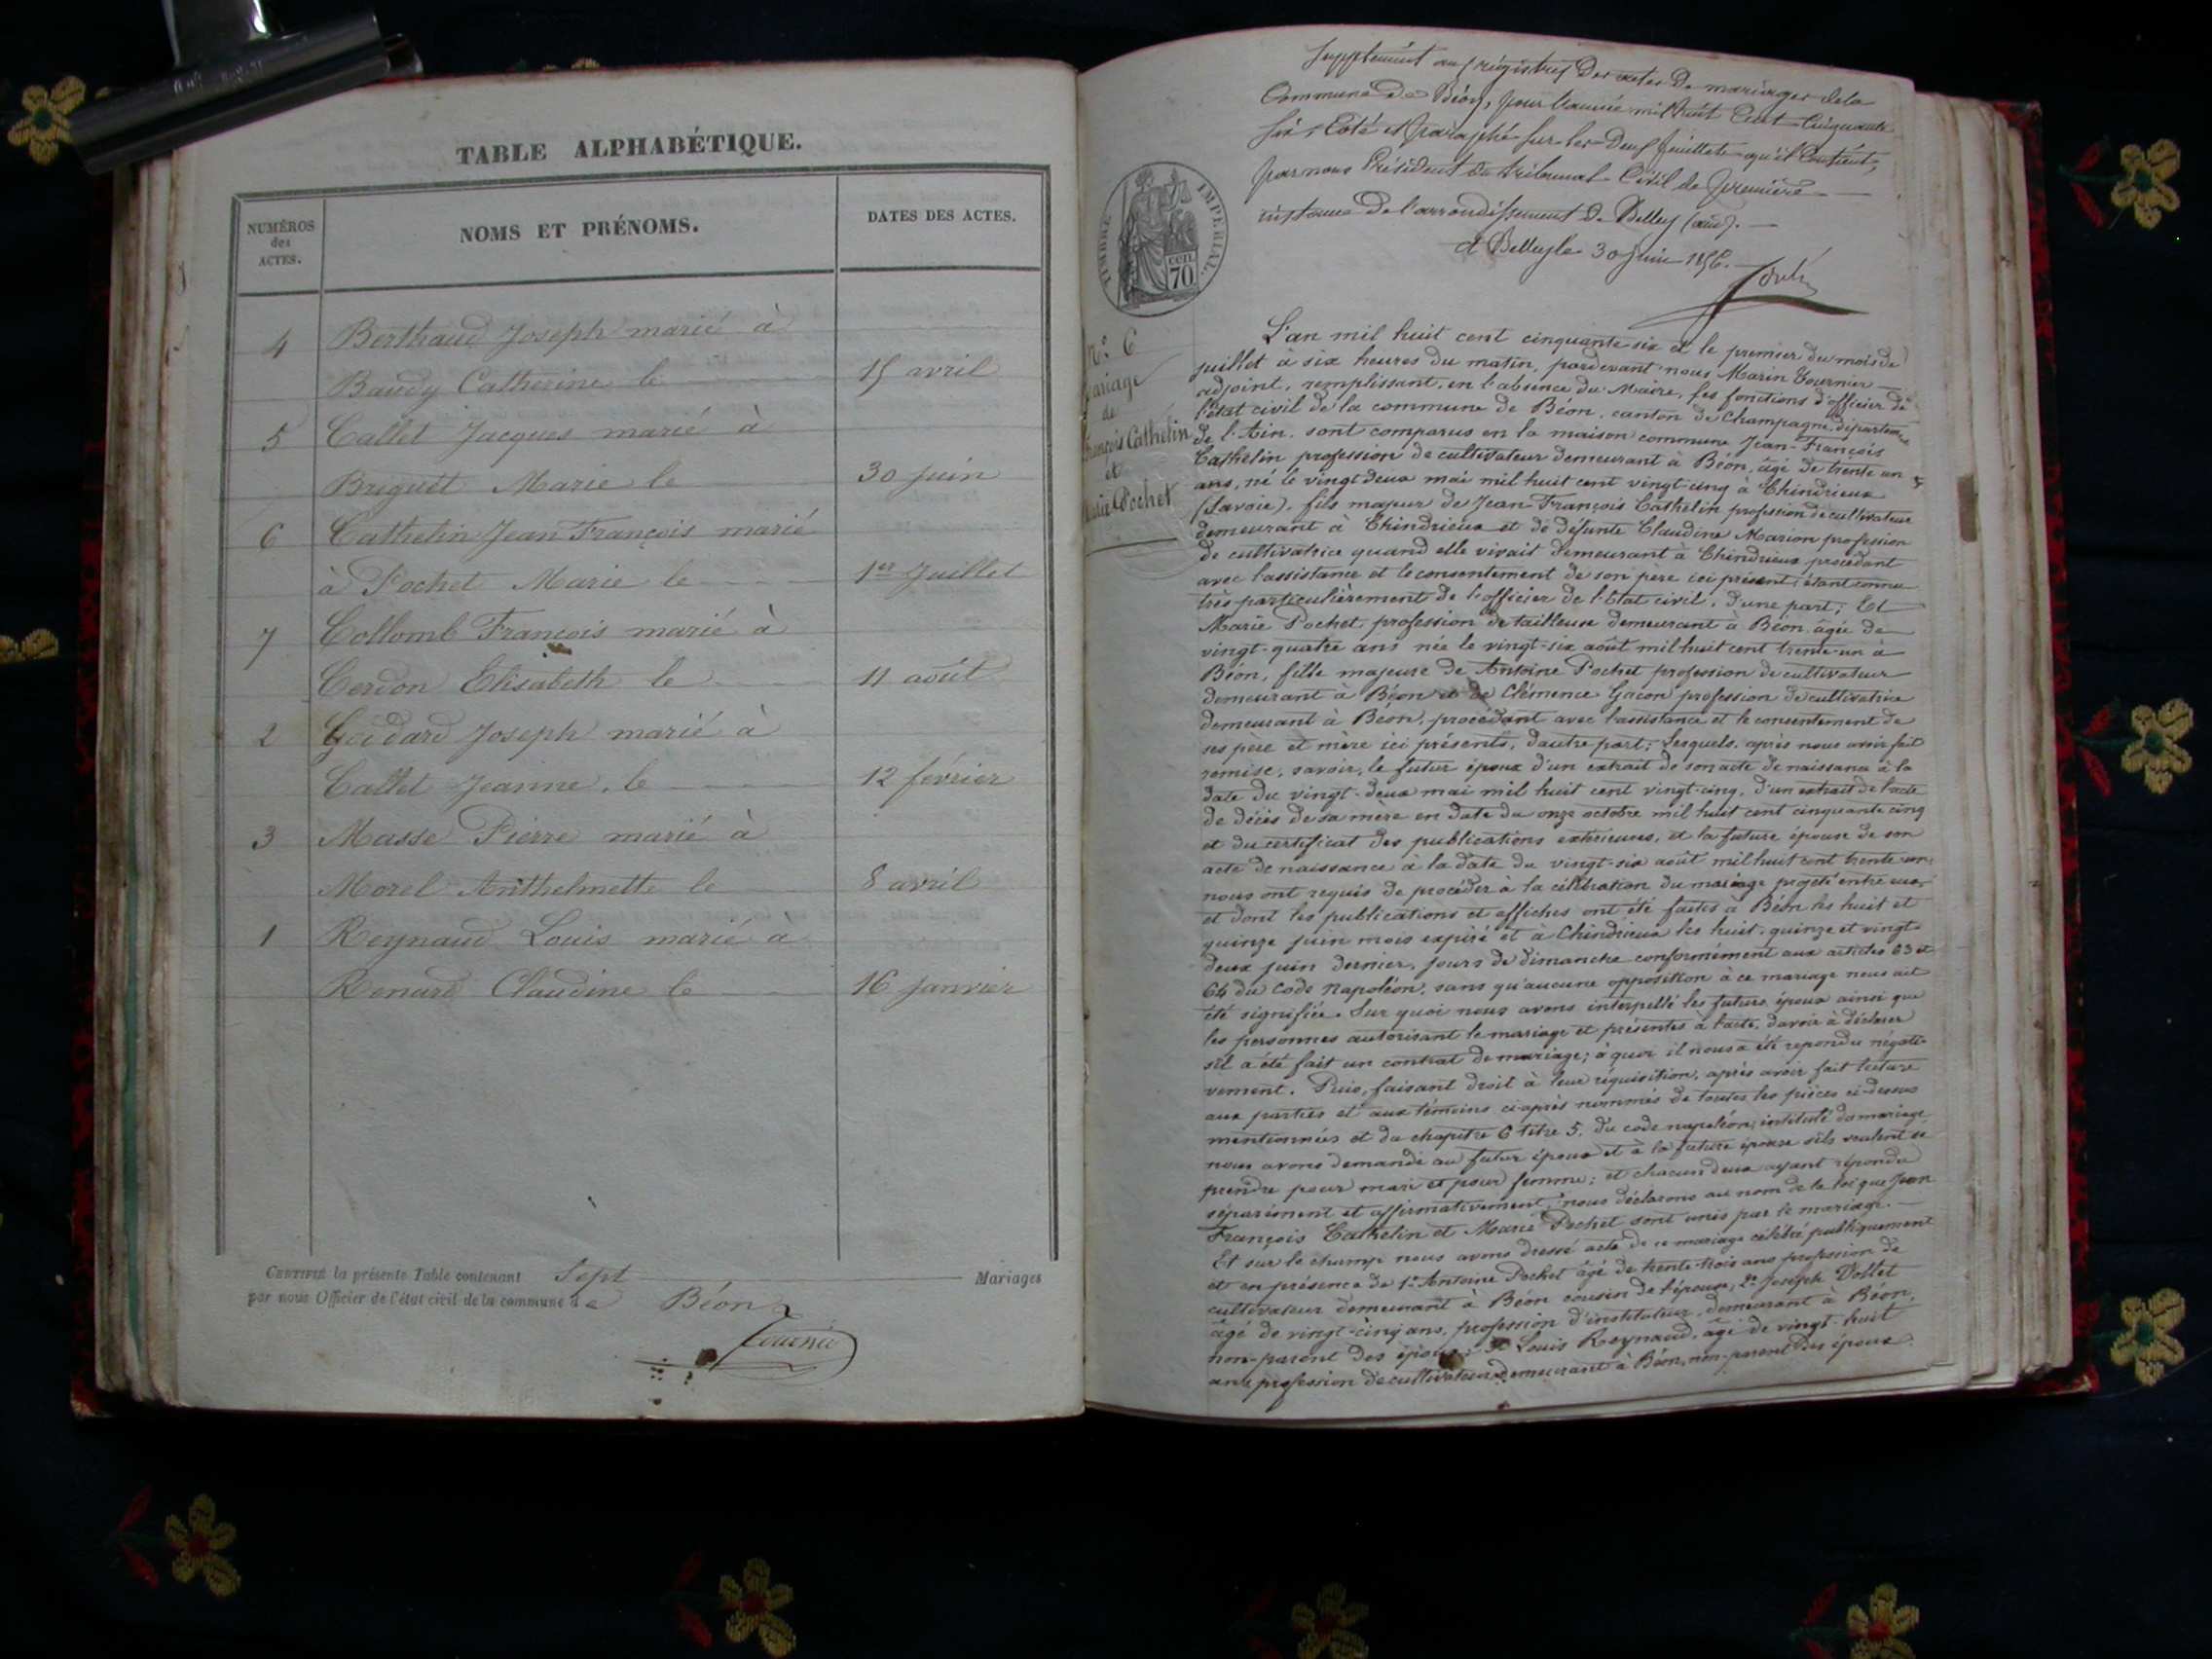 TABLE ALPHABÉTIQUE.
NUMÉROS
des
ACTES.
NOMS ET PRÉNOMS.
DATES DES ACTES.
4 Berthaud Joseph marié à
Baudy Catherine le 15 avril
5 Callet Jacques marié à
Briguet Marie le 30 juin
6 Cathelin Jean François marié
à Pochet Marie le 1er Juillet
7 Collomb François marié à
Cerdon Elisabeth le 11 août
2 Goddard Joseph marié à
Callet Jeanne, le 12 février
3 Masse Pierre marié à
Morel Anthelmette le 8 avril
1 Reynaud Louis marié à
Renard Claudine le 16 janvier
CERTIFIÉ la présente Table contenant Sept Mariages
par nous Officier de l'état civil de la commune de Béon
Tournier
Supplément aux registres des actes de mariages de la
Commune de Béon, pour l'année mil huit Cent Cinquante
six, Coté et paraphé sur les Deux feuillets qu'il Contient,
par nous Président du tribunal Civil de première
instance de l'arrondissement de Belley (ain).
A Belley le 30 Juin 1856.
TIMBRE IMPÉRIAL.
cen
70
No. 6
Mariage
de
François Cathelin
et
Marie Pochet
L'an mil huit cent cinquante six et le premier du mois de
juillet à six heures du matin, pardevant nous Marin Tournier
adjoint, remplissant, en l'absence du Maire, les fonctions d'officier de
l'état civil de la commune de Béon, canton de Champagne, département
de l'Ain, sont comparus en la maison commune Jean-François
Cathelin profession de cultivateur demeurant à Béon, âgé de trente un
ans, né le vingt deux mai mil huit cent vingt-cinq à Chindrieux
(Savoie), fils majeur de Jean François Cathelin profession de cultivateur
demeurant à Chindrieux et de défunte Claudine Marion profession
de cultivatrice quand elle vivait demeurant à Chindrieux procédant
avec l'assistance et le consentement de son père ici présent, étant connu
très particulièrement de l'officier de l'Etat civil, d'une part; Et
Marie Pochet, profession de tailleuse demeurant à Béon âgée de
vingt-quatre ans née le vingt-six août mil huit cent trente-un à
Béon, fille majeure de Antoine Pochet profession de cultivateur
demeurant à Béon et de Clémence Gacon profession de cultivatrice
demeurant à Béon, procédant avec l'assistance et le consentement de
ses père et mère ici présents, d'autre part; Lesquels, après nous avoir fait
remise, savoir, le futur époux d'un extrait de son acte de naissance à la
date du vingt-deux mai mil huit cent vingt-cinq, d'un extrait de l'acte
de décès de sa mère en date du onze octobre mil huit cent cinquante cinq
et du certificat des publications extérieures, et la future épouse de son
acte de naissance à la date du vingt-six août mil huit cent trente-un
nous ont requis de procéder à la célébration du mariage projeté entre eux,
et dont les publications et affiches ont été faites à Béon les huit et
quinze juin mois expiré et à Chindrieux les huit, quinze et vingt
deux juin dernier, jours de dimanche conformément aux articles 63 et
64 du Code Napoléon, sans qu'aucune opposition à ce mariage nous ait
été signifiée. Sur quoi nous avons interpellé les futurs époux ainsi que
les personnes autorisant le mariage et présentes à l'acte, d'avoir à déclarer
s'il a été fait un contrat de mariage; à quoi il nous a été repondu négati-
vement. Puis, faisant droit à leur réquisition, après avoir fait lecture
aux parties et aux témoins ci-après nommés de toutes les pièces ci-dessus
mentionnées et du chapitre 6 titre 5. du code napoléon, intitulé du mariage
nous avons demandé au futur époux et à la future épouse s'ils veulent se
prendre pour mari et pour femme; et chacun d'eux ayant répondu
séparément et affirmativement, nous déclarons au nom de la loi que Jean
François Cathelin et Marie Pochet sont unis par le mariage.
Et sur le champ nous avons dressé acte de ce mariage célébré publiquement
et en présence de 1° Antoine Pochet âgé de trente-trois ans profession de
cultivateur demeurant à Béon cousin de l'épouse, 2° Joseph Vollet
âgé de vingt-cinq ans, profession d'instituteur, demeurant à Béon,
non-parent des époux; 3° Louis Reynaud, âgé de vingt-huit
ans profession de cultivateur demeurant à Béon, non-parent des époux